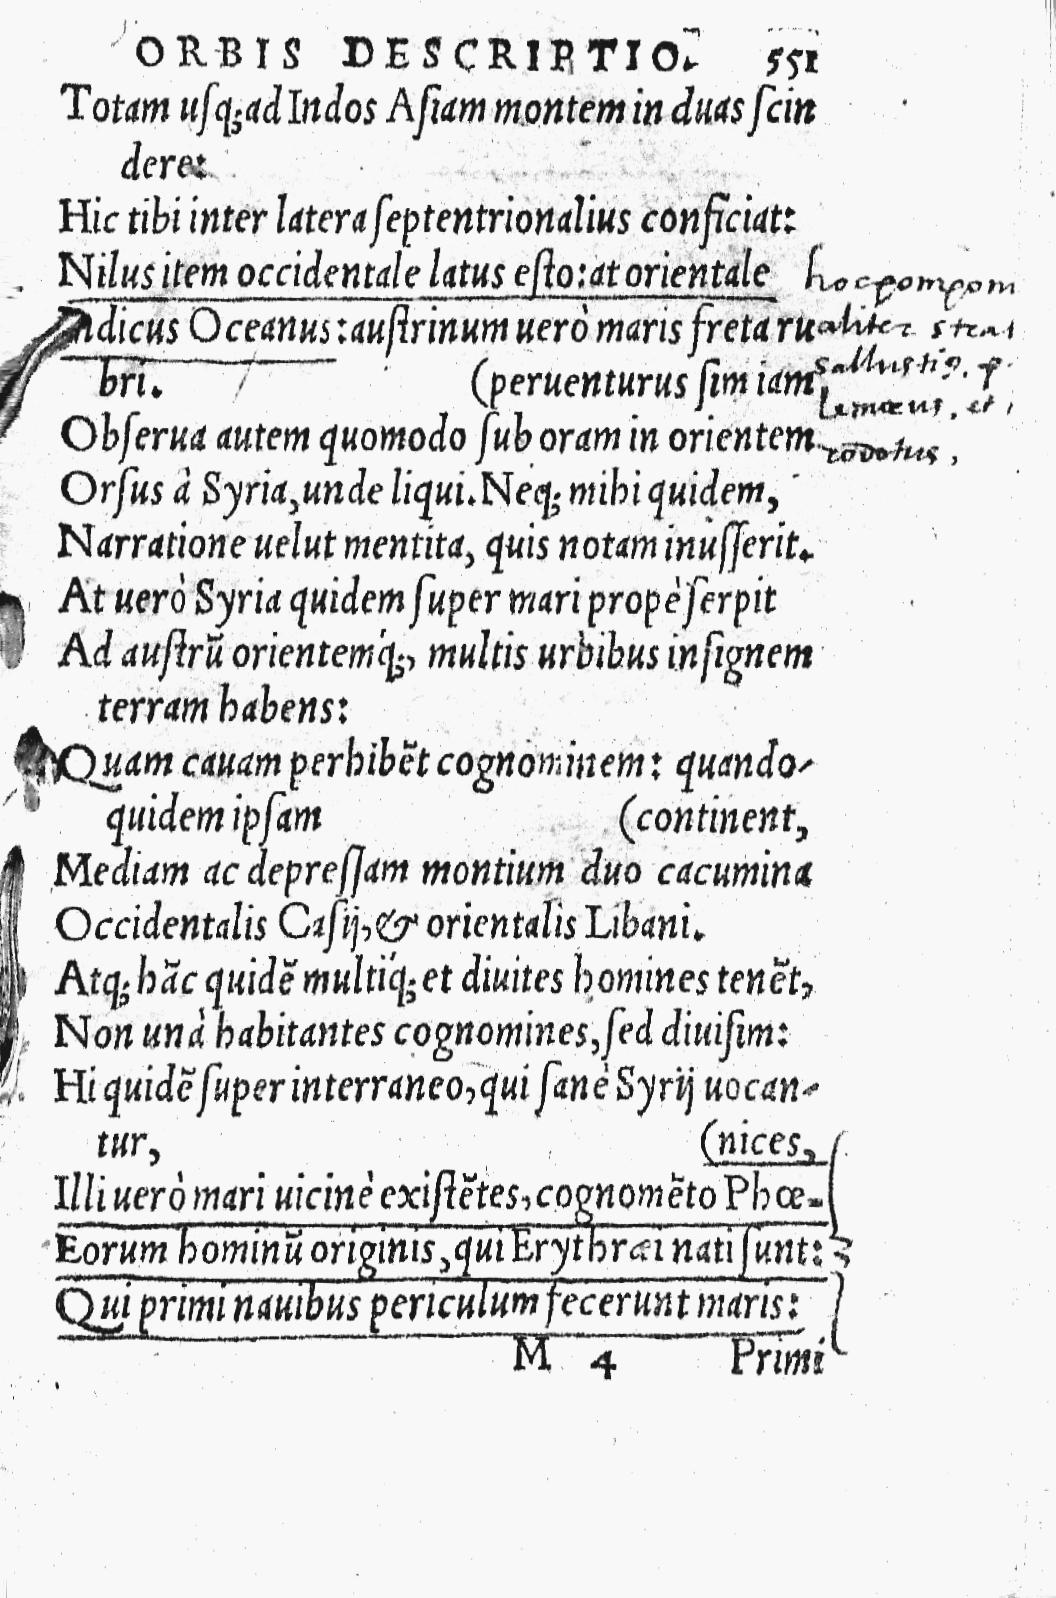 ORBIS DESCRIPTIO. 551
Totam uſq;ad Indos Aſiam montem in duas ſcin
dere:
Hic tibi inter latera ſeptentrionalius conficiat:
Nilus item occidentale latus eſto:at orientale
Indicus Oceanus:auſtrinum uerò maris freta ru
bri. (peruenturus ſim iam,
Obſerua autem quomodo ſub oram in orientem
Orſus à Syria,unde liqui.Neq; mihi quidem,
Narratione uelut mentita, quis notam inuſſerit.
At uerò Syria quidem ſuper mari propè ſerpit
Ad auſtrũ orientemq́;, multis urbibus inſignem
terram habens:
Quam cauam perhibẽt cognominem: quando-
quidem ipſam (continent,
Mediam ac depreſſam montium duo cacumina
Occidentalis Caſij,& orientalis Libani.
Atq; hãc quidẽ multiq́;et diuites homines tenẽt,
Non unà habitantes cognomines,ſed diuiſim:
Hi quidẽ ſuper interraneo,qui ſanè Syrij uocan-
tur, (nices,
Illi uerò mari uicinè exiſtẽtes,cognomẽto Phœ-
Eorum hominũ originis,qui Erythræi nati ſunt:
Qui primi nauibus periculum fecerunt maris:
M 4 Primi
hoc pompom
aliter stra
sallustiꝯ. p
lemæus, et
rodotus,